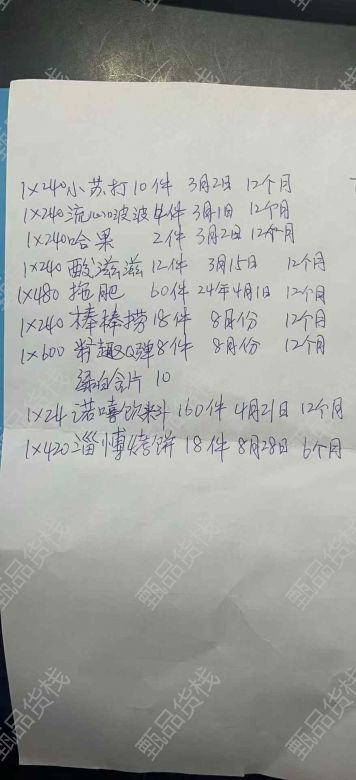 1×240小苏打10件 3月2日 12个月
1×240流心波波4件 3月1日 12个月
1×240哈果 2件 3月2日 12个月
1×240酸滋滋12件 3月15日 12个月
1×480拖肥 60件 24年4月1日 12个月
1×240棒棒捞18件 8月份 12个月
1×600 趣QQ弹8件 8月份 12个月
片 10
1×24诺嘻饮料160件 4月21日 12个月
1×420淄博烤饼 18件 8月28日 6个月
甄品货栈